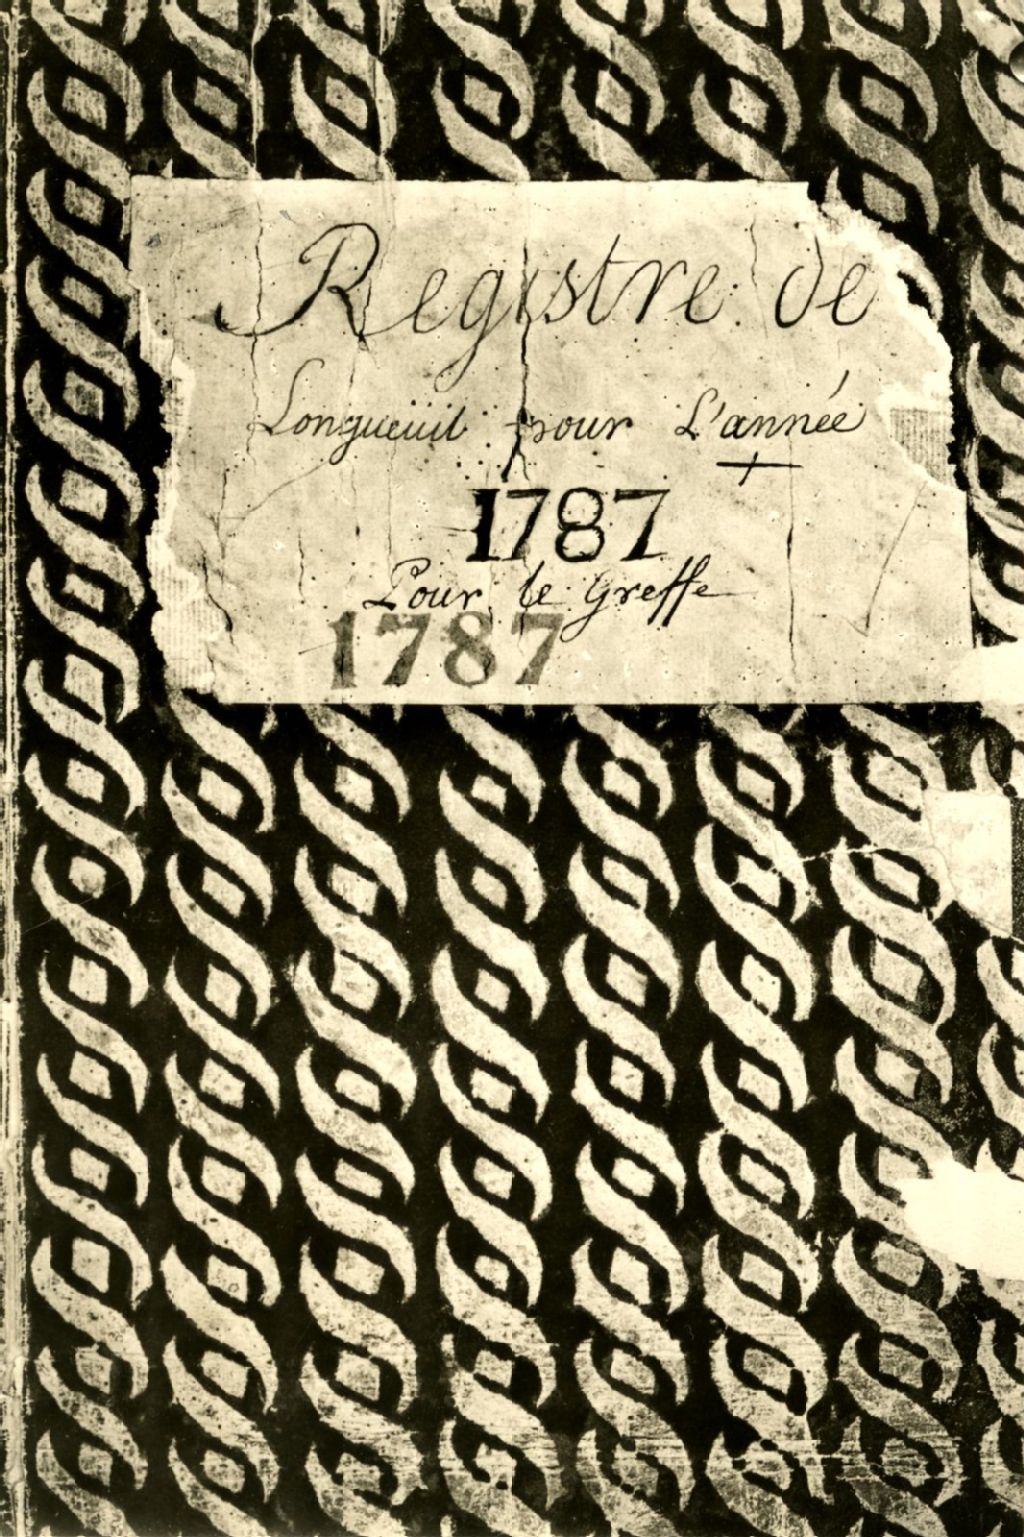 Registre de
Longueüil pour L'année
1787
Pour le Greffe
1787